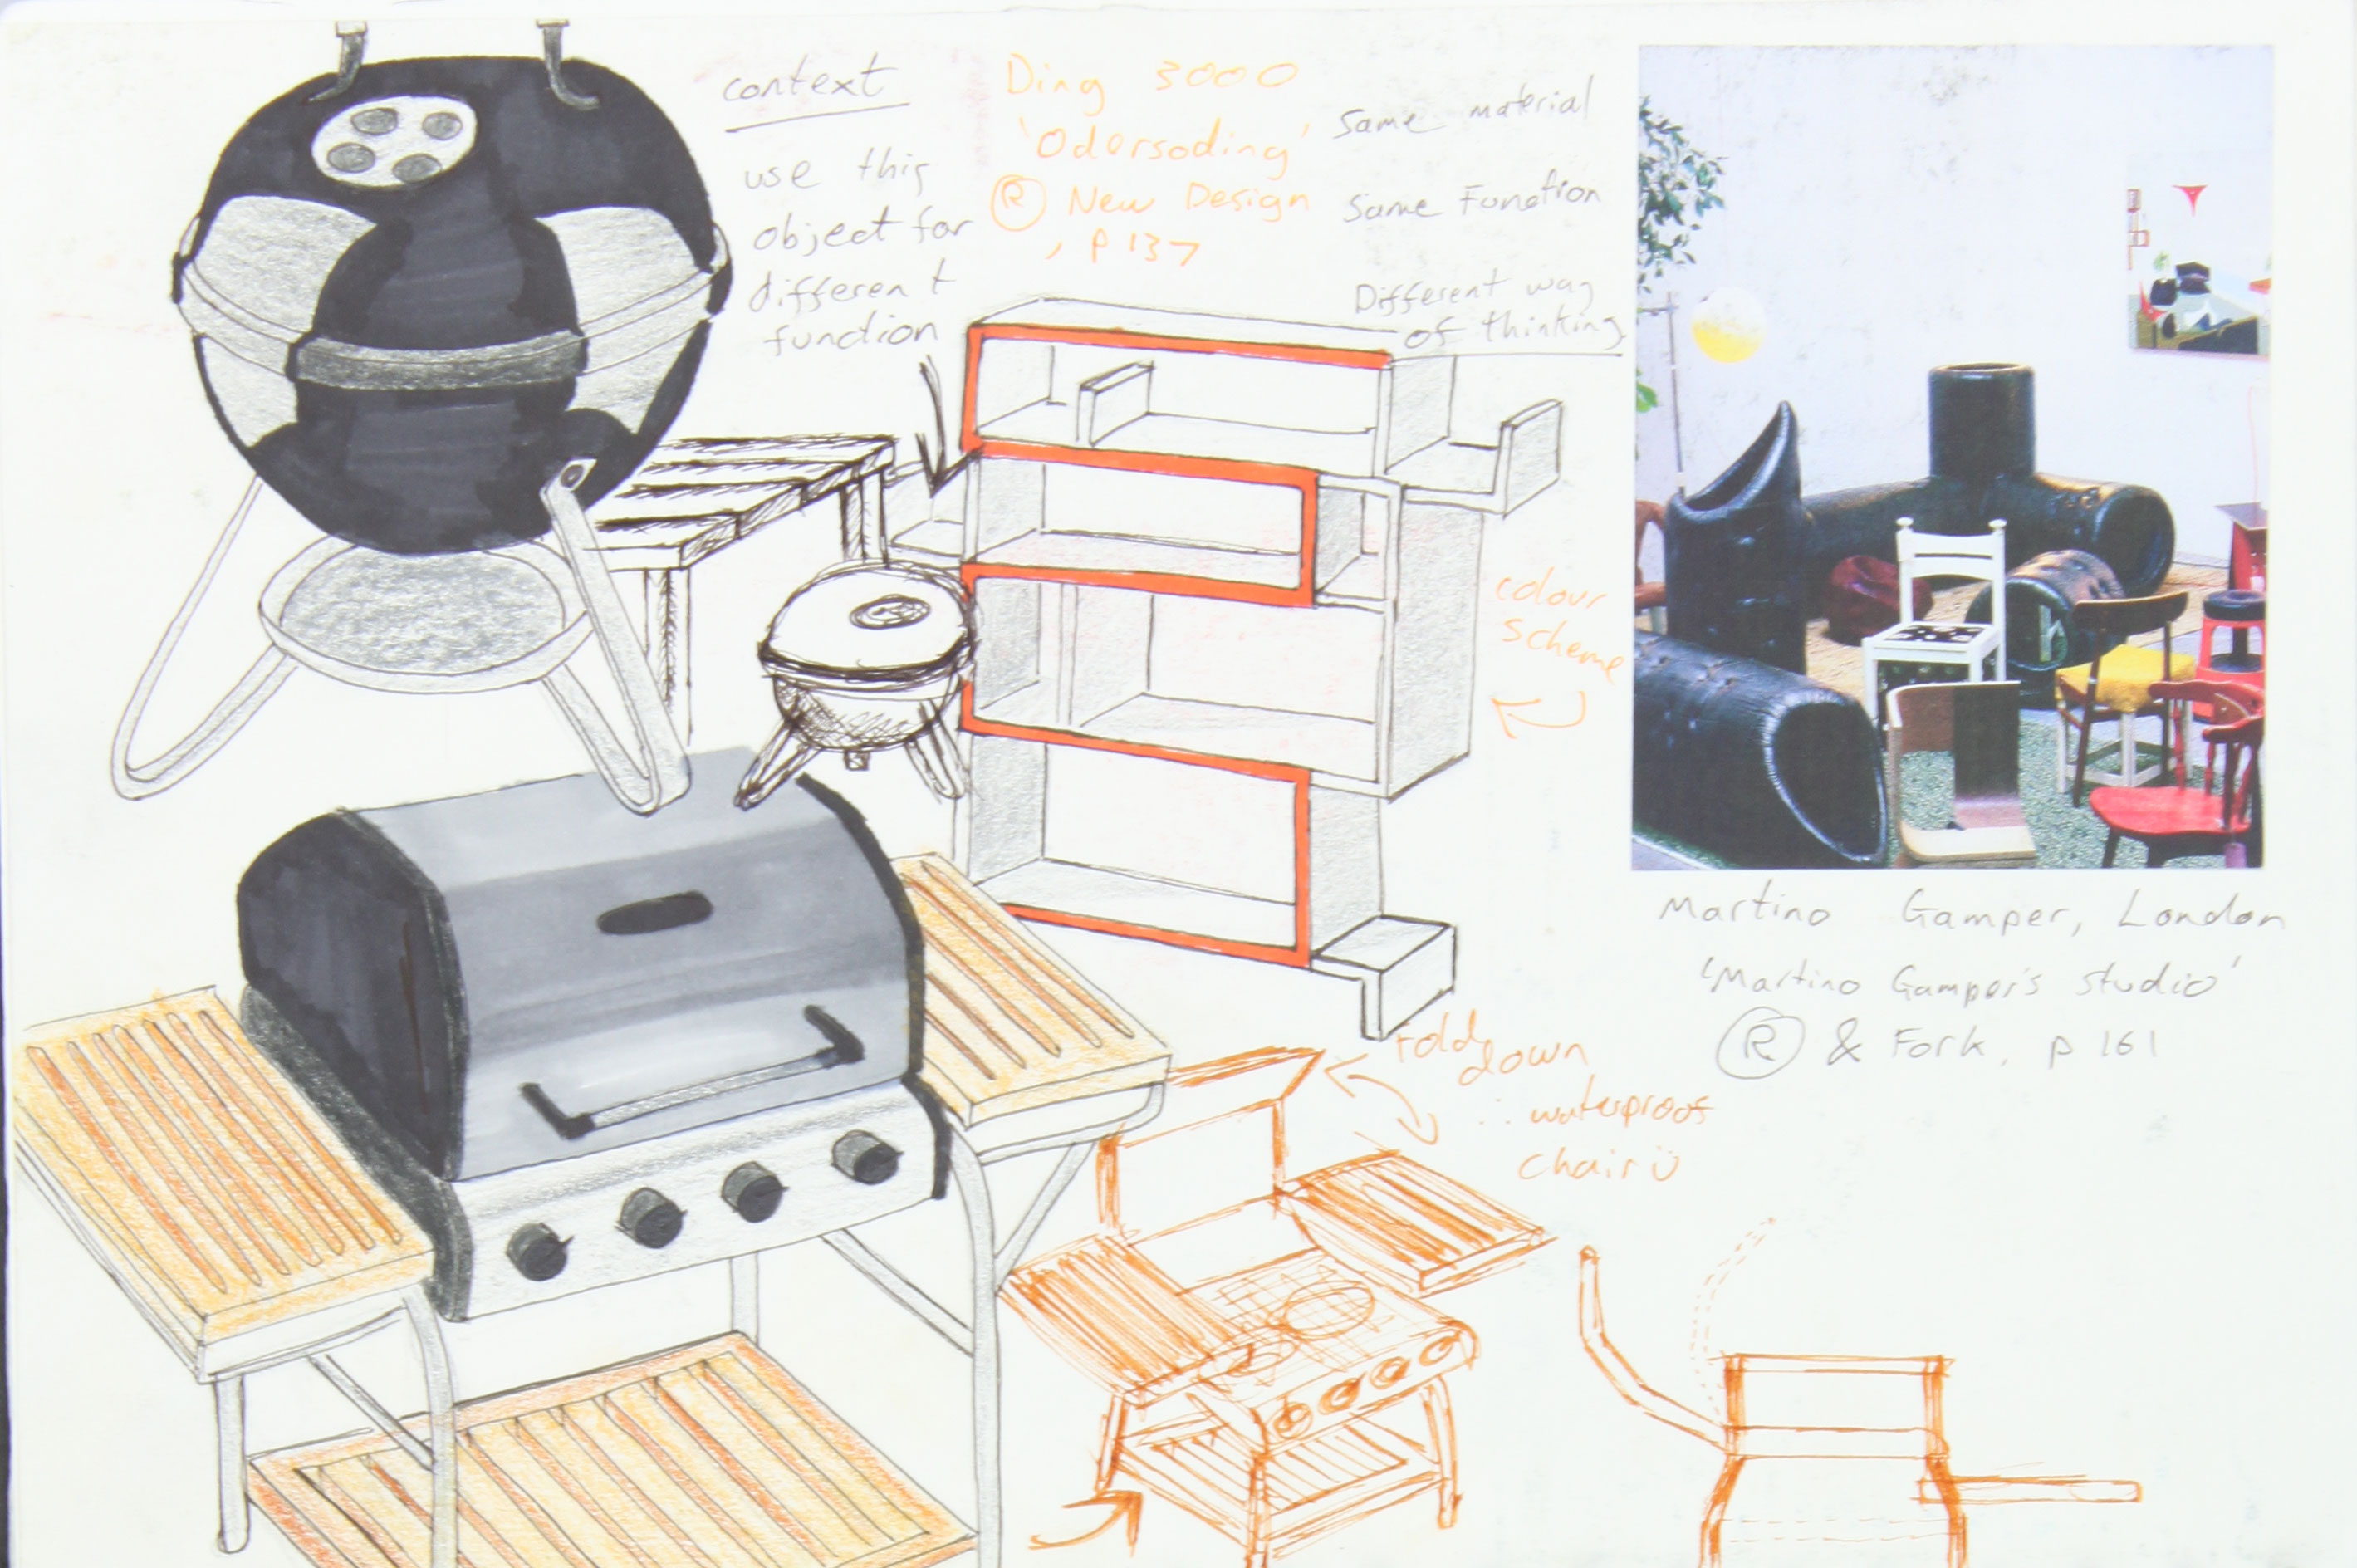 context
use this
object for
different
function
Ding 3000
'Odersoding'
Ⓡ New Design
, p 137
Same material
Same Function
Different way
of thinking
colour
scheme
Martino Gamper, London
'Martino Gamper's studio'
Ⓡ & Fork, p 161
Fold
down
∴ waterproof
chair ü